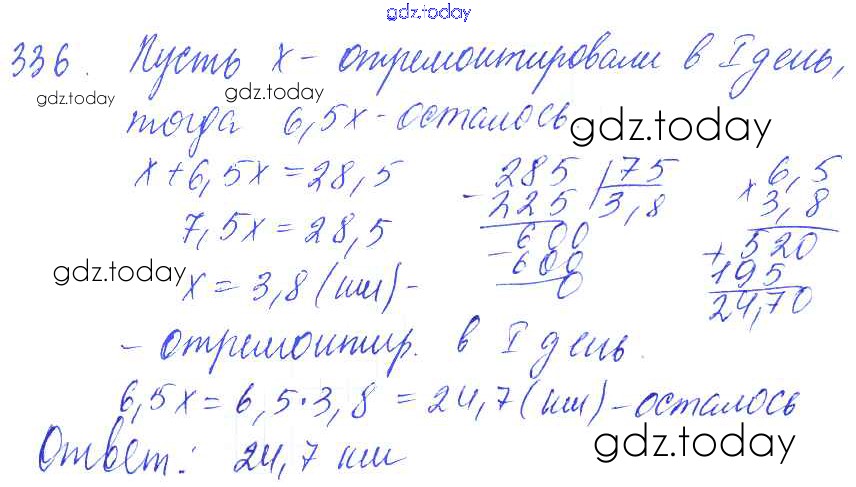 gdz.today
336. Пусть x - отремонтировали в I день,
gdz.today gdz.today
тогда 6,5x - осталось.
gdz.today
x + 6,5x = 28,5
7,5x = 28,5
gdz.today
x = 3,8 (км) -
285 | 75
- 225 | 3,8
600
- 600
0
6,5
x 3,8
+ 520
195
24,70
- отремонтир. в I день.
6,5x = 6,5 · 3,8 = 24,7 (км) - осталось
gdz.today
Ответ: 24,7 км